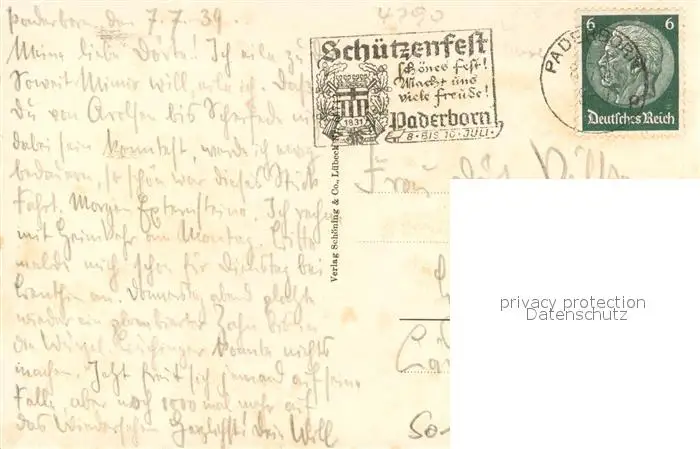 Paderborn den 7.7.39.
4390
Meine liebe Dörte! Ich eile zu
Soweit Mimir will eile ich. Daß
Du von Arolsen bis Scherfede
dabei sein konntest, werde ich ewig
bedauern, so schön war dieses Stück
Fahrt. Morgen Externsteine. Ich rechne
mit Heimkehr am Montag. Bitte
melde mich schon für Dienstag bei
an. Donnerstag abend platzte
wieder ein plombierter Zahn bis in
die Wurzel. konnte nichts
machen. Jetzt freut sich jemand auf seine
Falle, aber noch 1000 mal mehr auf
das Wiedersehen Herzlichst! Dein Will
Schützenfest
schönes Fest!
Macht uns
viele Freude!
Paderborn
8. BIS 10. JULI
1831
PADERBORN
6 6
Deutsches Reich
Verlag Schöning & Co., Lübeck
Frau
privacy protection
Datenschutz